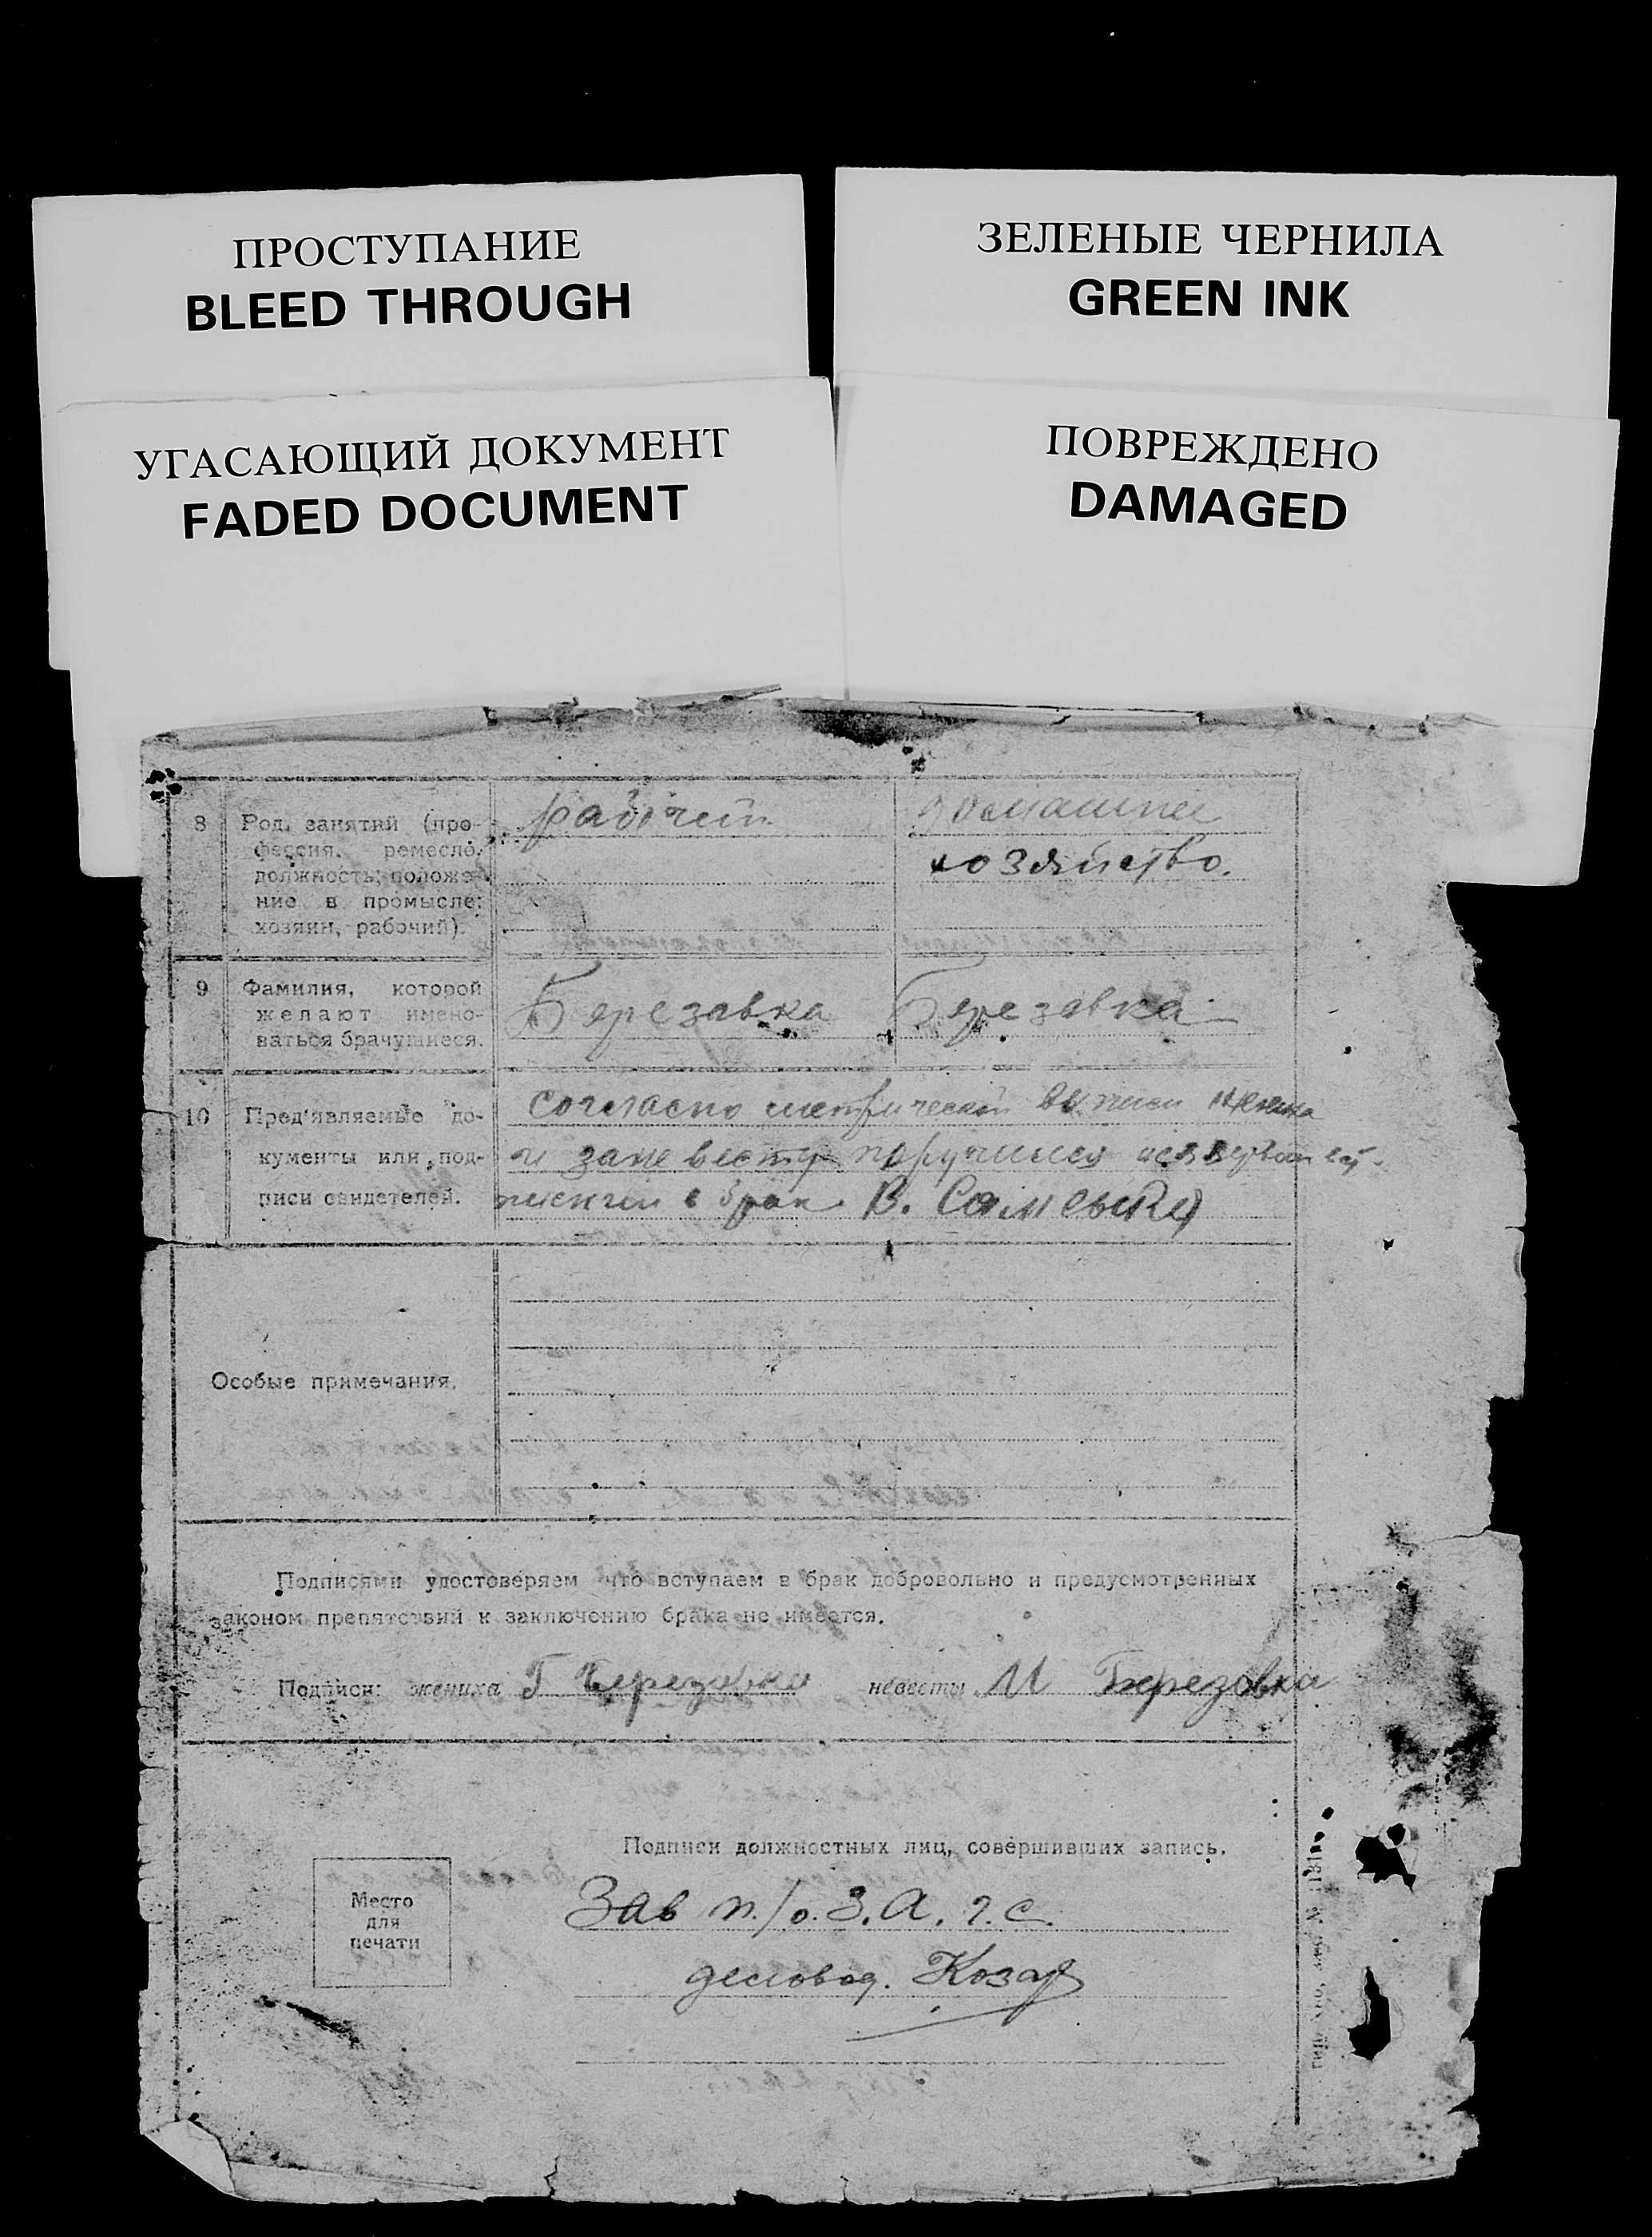 ПРОСТУПАНИЕ
BLEED THROUGH
ЗЕЛЕНЫЕ ЧЕРНИЛА
GREEN INK
УГАСАЮЩИЙ ДОКУМЕНТ
FADED DOCUMENT
ПОВРЕЖДЕНО
DAMAGED
8 Род занятий (про-
фессия, ремесло,
должность; положе-
ние в промысле:
хозяин, рабочий).
рабочий
домашнее
хозяйство.
9 Фамилия, которой
желают имено-
ваться брачущиеся.
Березавка Березавка
10 Пред'являемые до-
кументы или под-
писи свидетелей.
согласно метрической выписи
и за невесту поручился
в брак В.
Особые примечания.
Подписями удостоверяем что вступаем в брак добровольно и предусмотренных
законом препятствий к заключению брака не имеется.
Подписи: жениха Г Березовка невесты М Березовка
Подписи должностных лиц, совершивших запись.
Место
для
печати
Зав п./о. З.А.г.с.
деловод. Козар